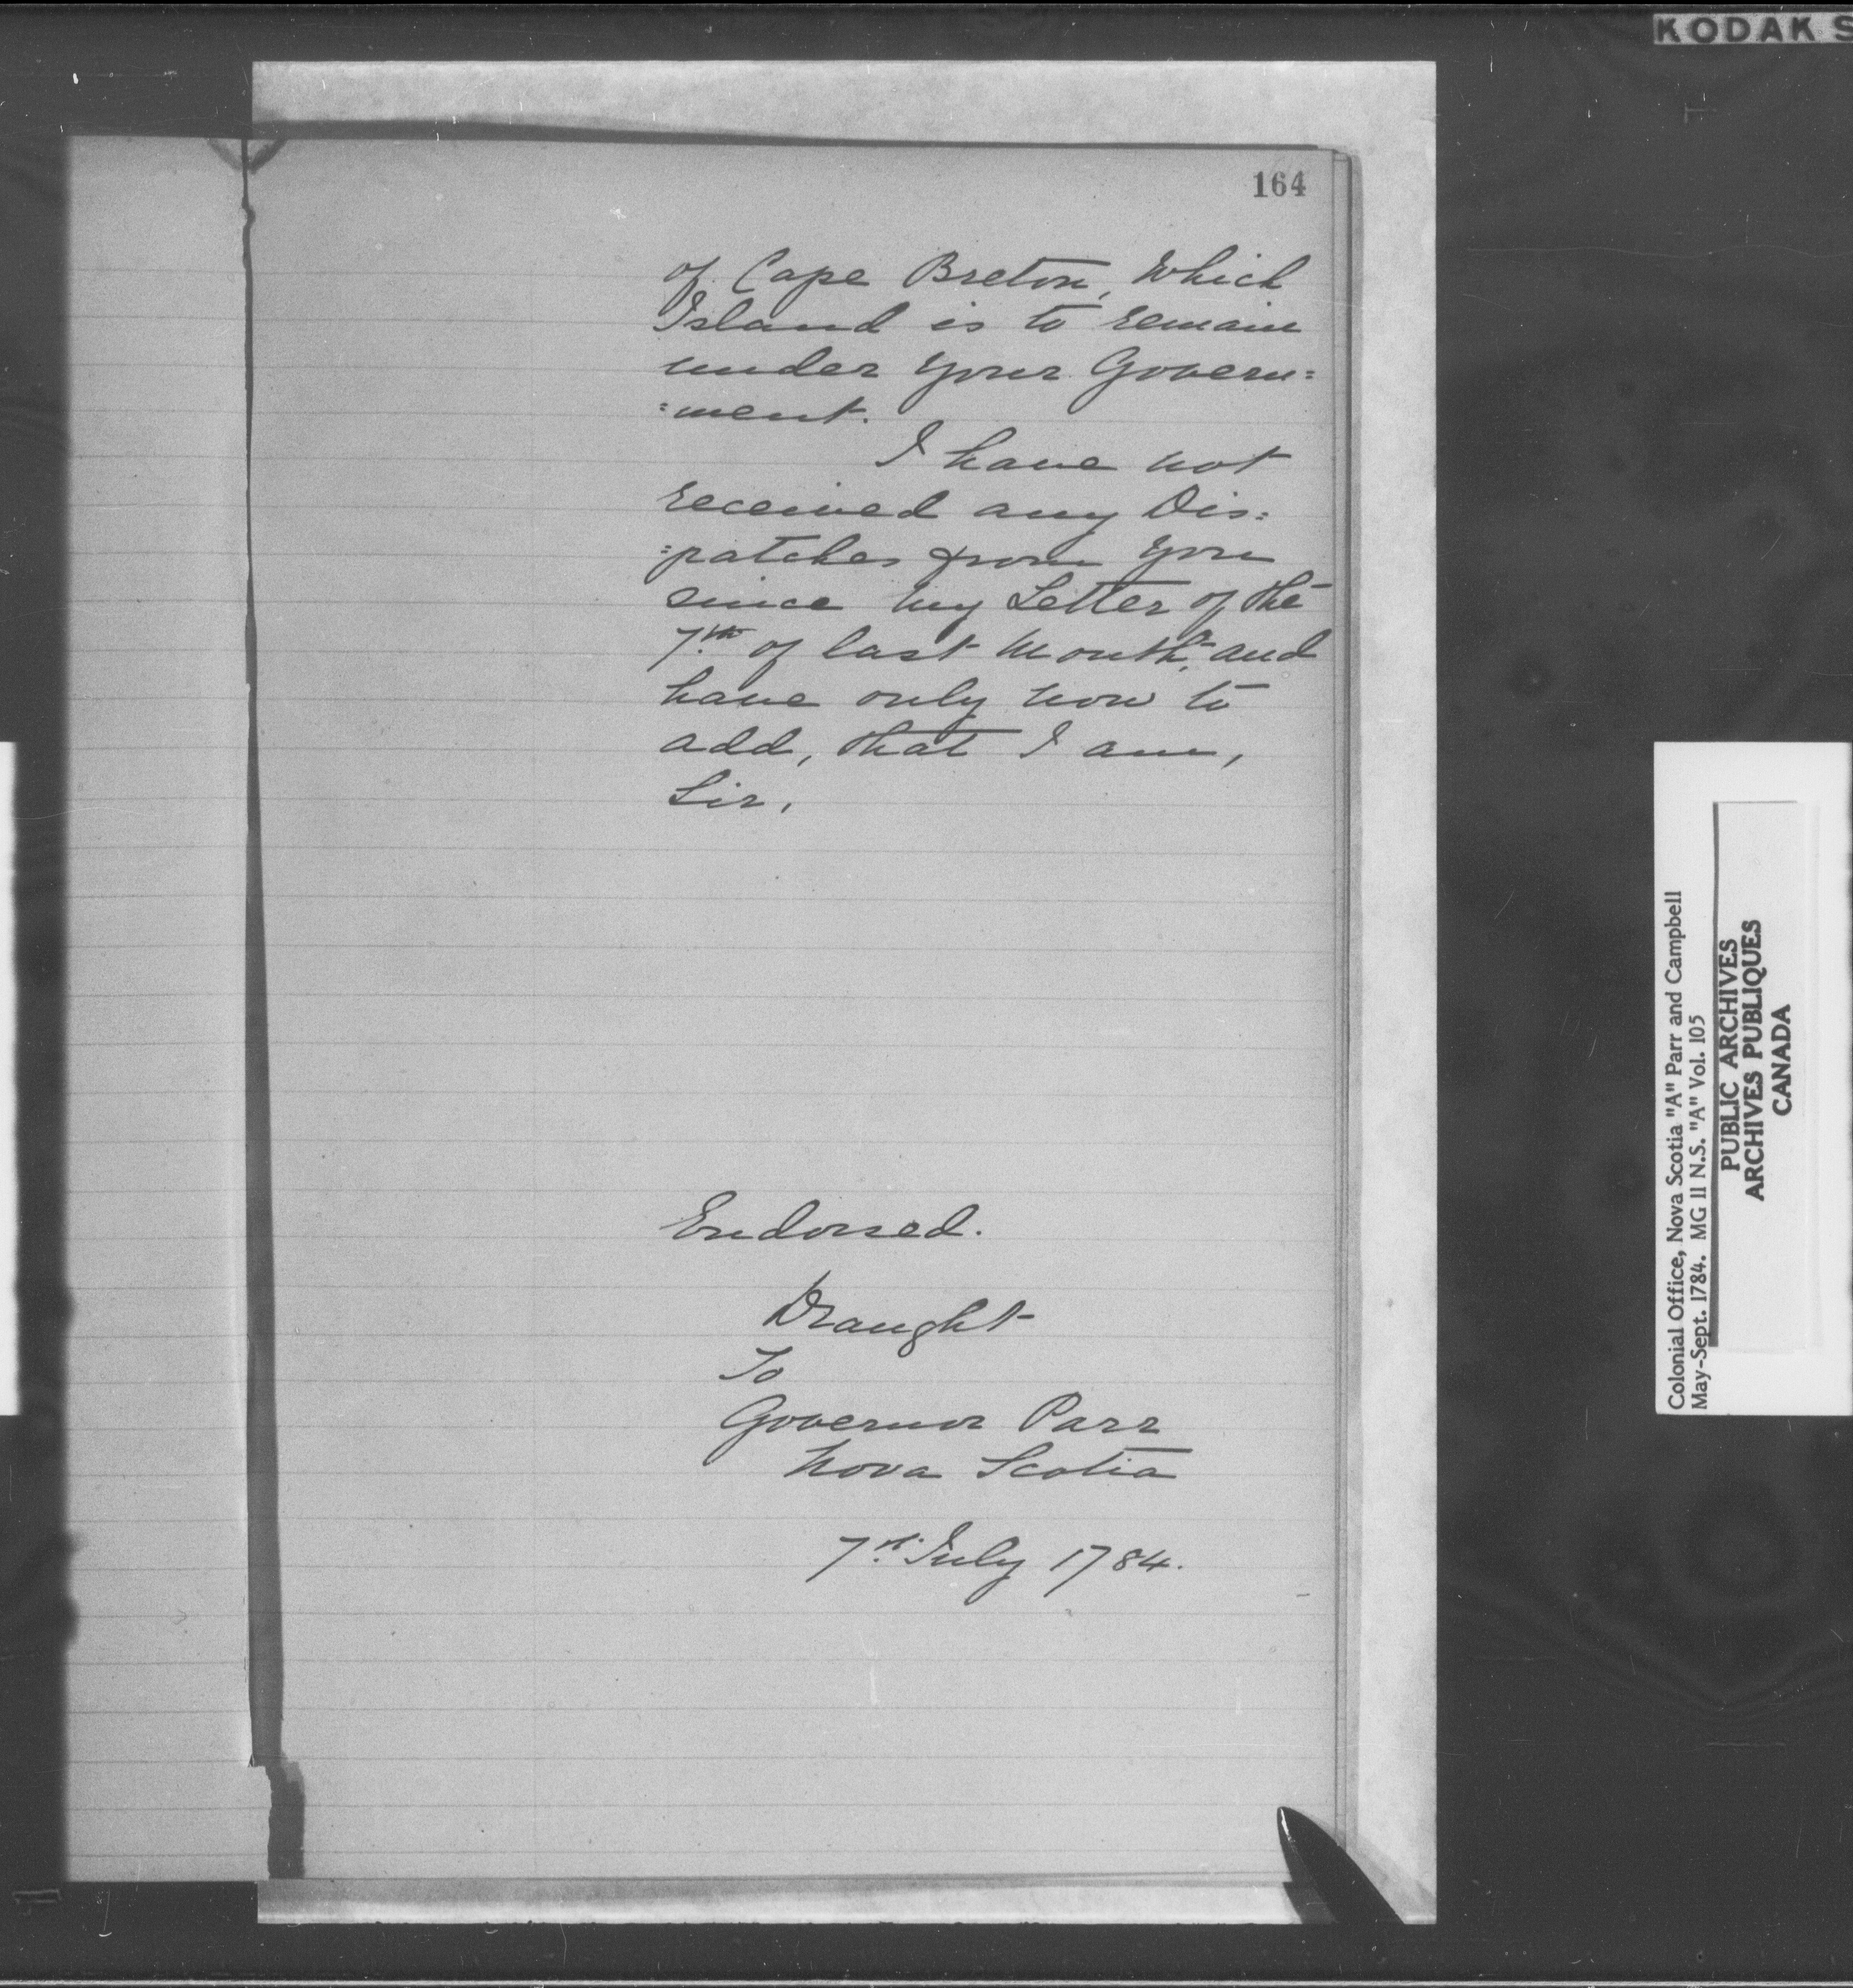 KODAK S
164
of Cape Breton, Which
Island is to remain
under your Govern=
=ment.
I have not
received any Dis=
=patches from you
since my Letter of the
7th of last Month, and
have only now to
add, that I am,
Sir,
Endorsed.
Draught
To
Governor Parr
Nova Scotia
7th July 1784.
Colonial Office, Nova Scotia "A" Parr and Campbell
May-Sept. 1784. MG 11 N.S. "A" Vol. 105
PUBLIC ARCHIVES
ARCHIVES PUBLIQUES
CANADA